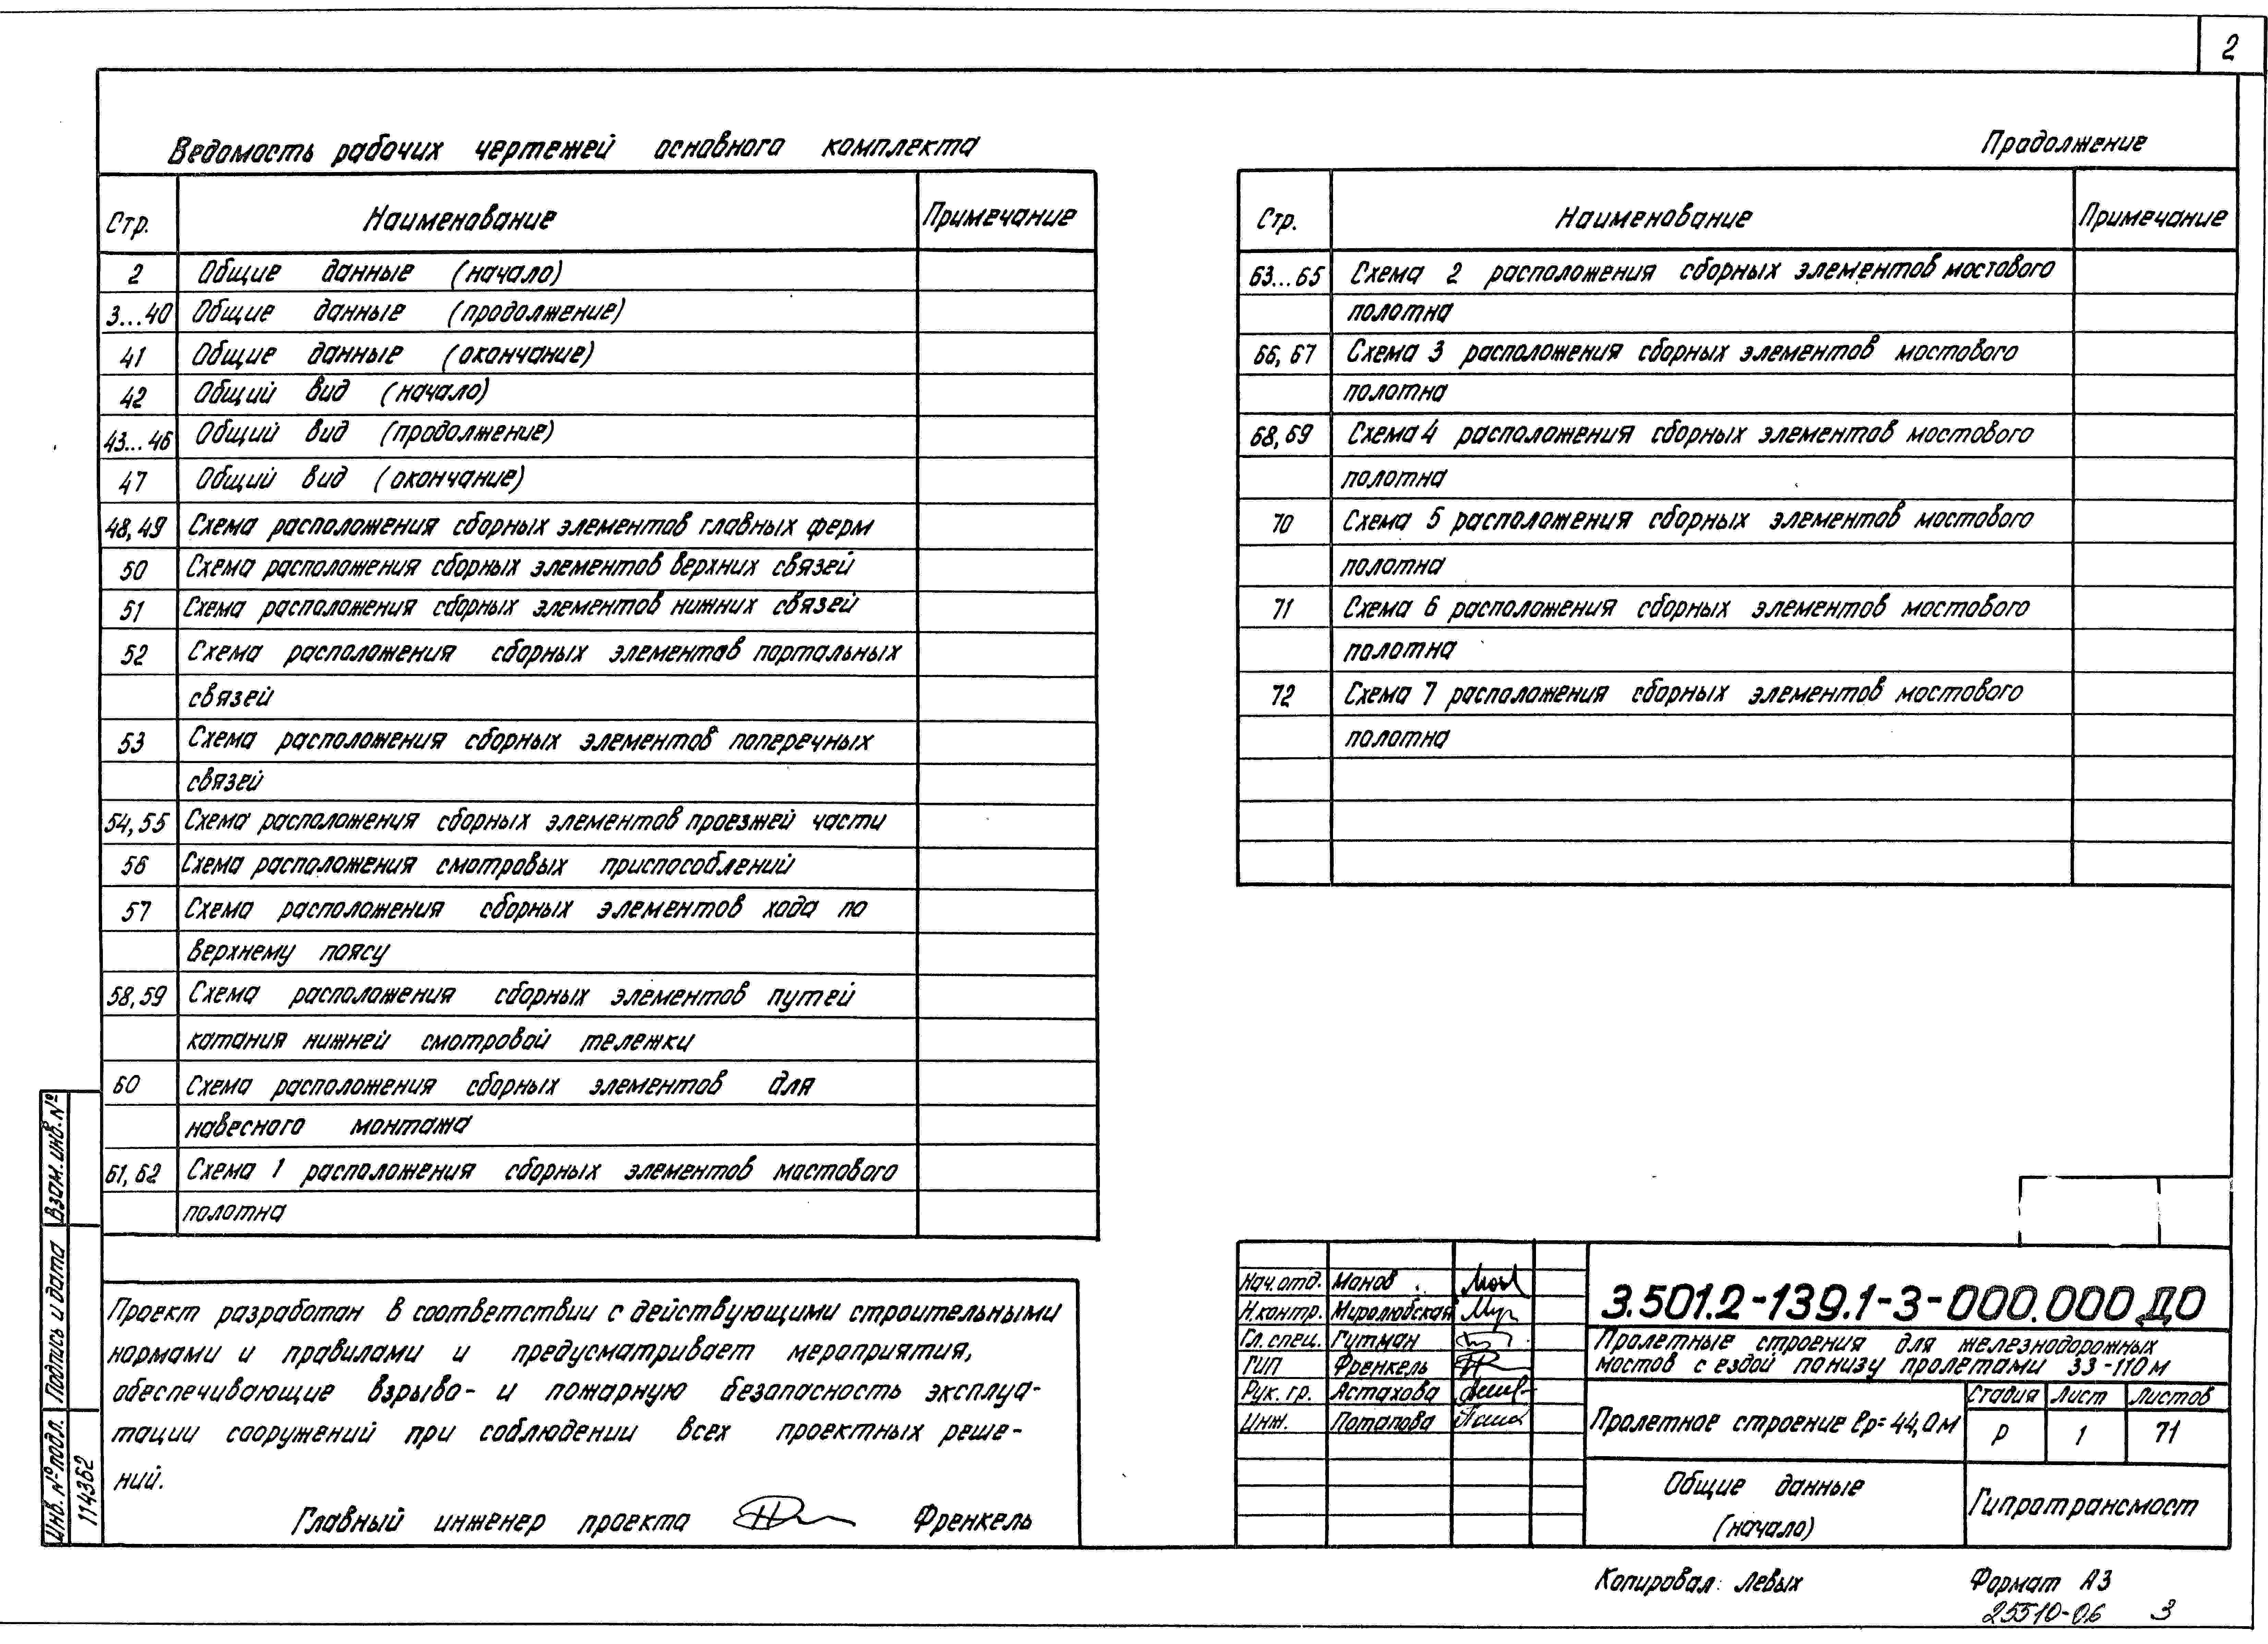 2
Ведомость рабочих чертежей основного комплекта
Стр. Наименование Примечание
2 Общие данные (начало)
3...40 Общие данные (продолжение)
41 Общие данные (окончание)
42 Общий вид (начало)
43...46 Общий вид (продолжение)
47 Общий вид (окончание)
48, 49 Схема расположения сборных элементов главных ферм
50 Схема расположения сборных элементов верхних связей
51 Схема расположения сборных элементов нижних связей
52 Схема расположения сборных элементов портальных
связей
53 Схема расположения сборных элементов поперечных
связей
54, 55 Схема расположения сборных элементов проезжей части
56 Схема расположения смотровых приспособлений
57 Схема расположения сборных элементов хода по
верхнему поясу
58, 59 Схема расположения сборных элементов путей
катания нижней смотровой тележки
60 Схема расположения сборных элементов для
навесного монтажа
61, 62 Схема 1 расположения сборных элементов мостового
полотна
Продолжение
Стр. Наименование Примечание
63...65 Схема 2 расположения сборных элементов мостового
полотна
66, 67 Схема 3 расположения сборных элементов мостового
полотна
68, 69 Схема 4 расположения сборных элементов мостового
полотна
70 Схема 5 расположения сборных элементов мостового
полотна
71 Схема 6 расположения сборных элементов мостового
полотна
72 Схема 7 расположения сборных элементов мостового
полотна
Проект разработан в соответствии с действующими строительными
нормами и правилами и предусматривает мероприятия,
обеспечивающие взрыво- и пожарную безопасность эксплуа-
тации сооружений при соблюдении всех проектных реше-
ний.
Главный инженер проекта Френкель
Взам. инв. №
Подпись и дата
Инв. № подл.
114362
Нач. отд. Манов
Н. контр. Миролюбская
Гл. спец. Гутман
ГИП Френкель
Рук. гр. Астахова
Инж. Потапова
3.501.2-139.1-3-000.000 ДО
Пролетные строения для железнодорожных
мостов с ездой понизу пролетами 33-110 м
Пролетное строение ℓр= 44,0 м
Стадия Лист Листов
Р 1 71
Общие данные
(начало)
Гипротрансмост
Копировал: Левых
Формат А3
25510-06 3